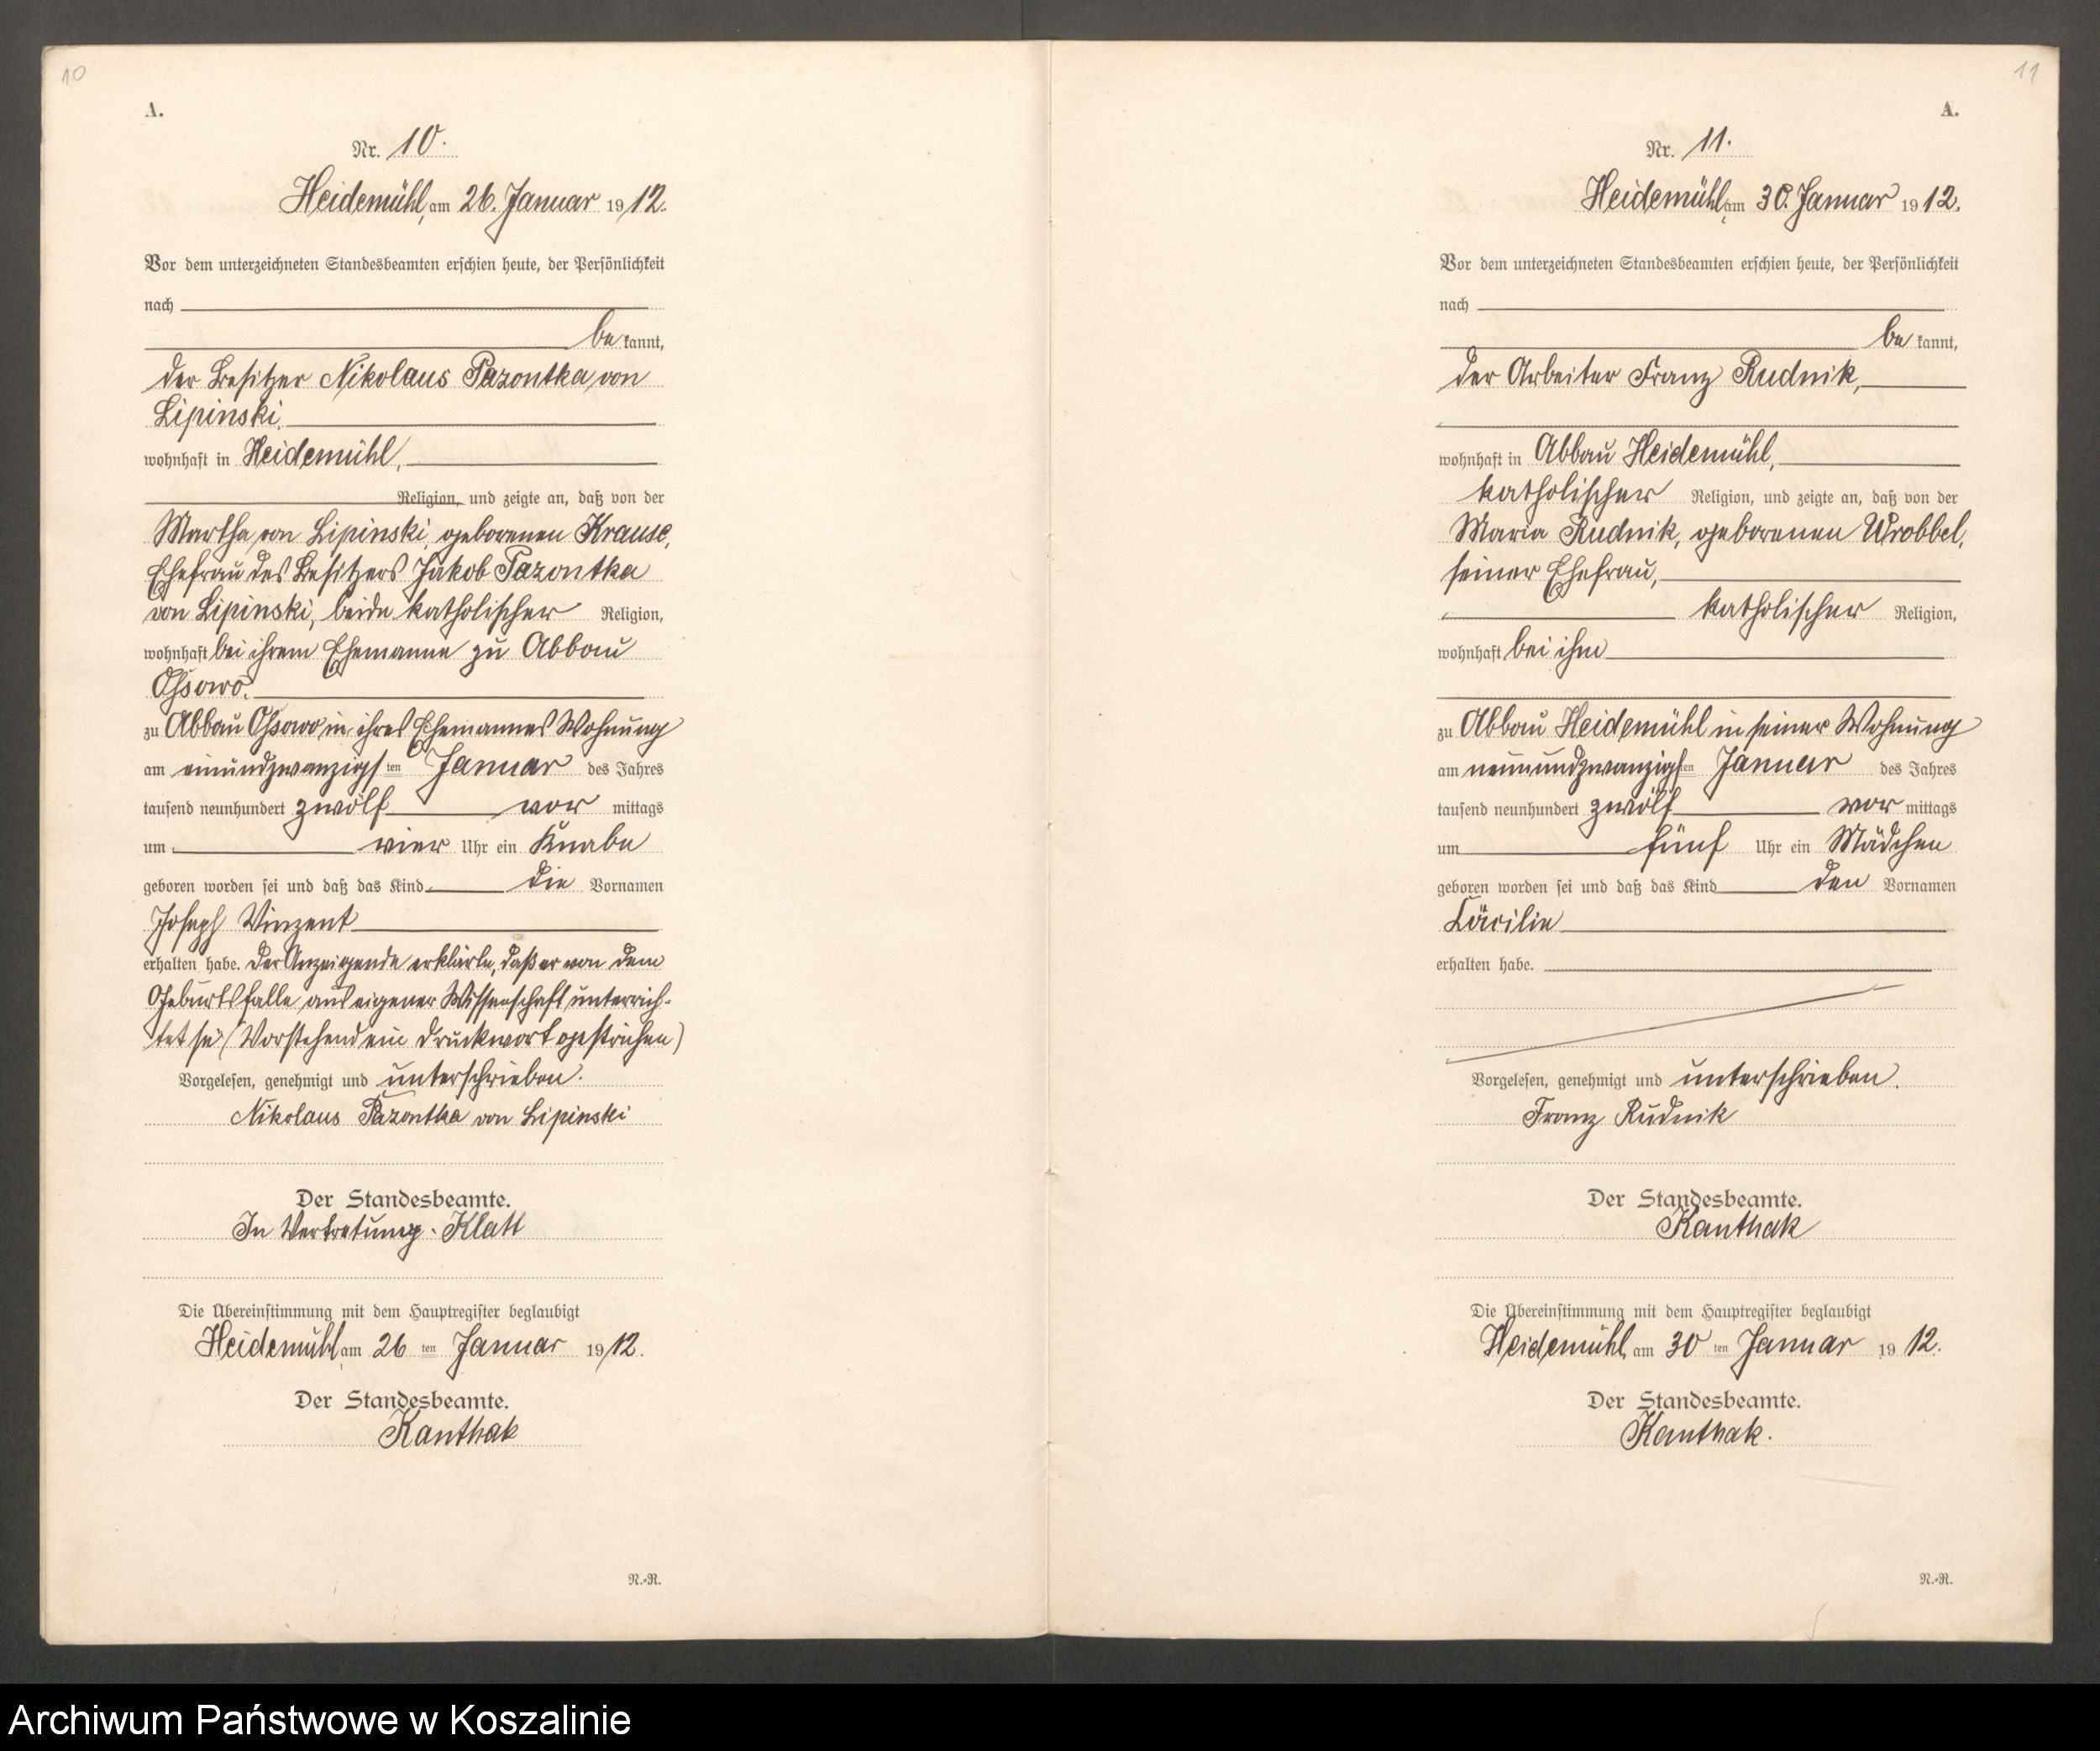 10
A.
Nr. 10.
Heidemühl, am 26. Januar 1912.
Vor dem unterzeichneten Standesbeamten erschien heute, der Persönlichkeit
nach
bekannt,
der Besitzer Nikolaus Pazontka von
Lipinski,
wohnhaft in Heidemühl,
Religion, und zeigte an, daß von der
Martha von Lipinski, geborenen Krause,
Ehefrau des Besitzers Jakob Pazontka
von Lipinski, beide katholischer Religion,
wohnhaft bei ihrem Ehemanne zu Abbau
Ossowo.
zu Abbau Ossowo in ihres Ehemannes Wohnung
am einundzwanzigsten Januar des Jahres
tausend neunhundert zwölf vormittags
um vier Uhr ein Knabe
geboren worden sei und daß das Kind die Vornamen
Joseph Vinzent
erhalten habe. Der Anzeigende erklärte, daß er von dem
Geburtsfalle aus eigener Wissenschaft unterrich-
tet sei (Vorstehend ein Druckwort gestrichen)
Vorgelesen, genehmigt und unterschrieben.
Nikolaus Pazontka von Lipinski
Der Standesbeamte.
In Vertretung. Klatt
Die Übereinstimmung mit dem Hauptregister beglaubigt
Heidemühl, am 26ten Januar 1912.
Der Standesbeamte.
Kanthak
N.-R.
11
A.
Nr. 11.
Heidemühl, am 30. Januar 1912.
Vor dem unterzeichneten Standesbeamten erschien heute, der Persönlichkeit
nach
bekannt,
der Arbeiter Franz Rudnik,
wohnhaft in Abbau Heidemühl,
katholischer Religion, und zeigte an, daß von der
Maria Rudnik, geborenen Wrobbel,
seiner Ehefrau,
katholischer Religion,
wohnhaft bei ihm
zu Abbau Heidemühl in seiner Wohnung
am neunundzwanzigsten Januar des Jahres
tausend neunhundert zwölf vormittags
um fünf Uhr ein Mädchen
geboren worden sei und daß das Kind den Vornamen
Cäcilie
erhalten habe.
Vorgelesen, genehmigt und unterschrieben.
Franz Rudnik
Der Standesbeamte.
Kanthak
Die Übereinstimmung mit dem Hauptregister beglaubigt
Heidemühl, am 30ten Januar 1912.
Der Standesbeamte.
Kanthak.
N.-R.
Archiwum Państwowe w Koszalinie